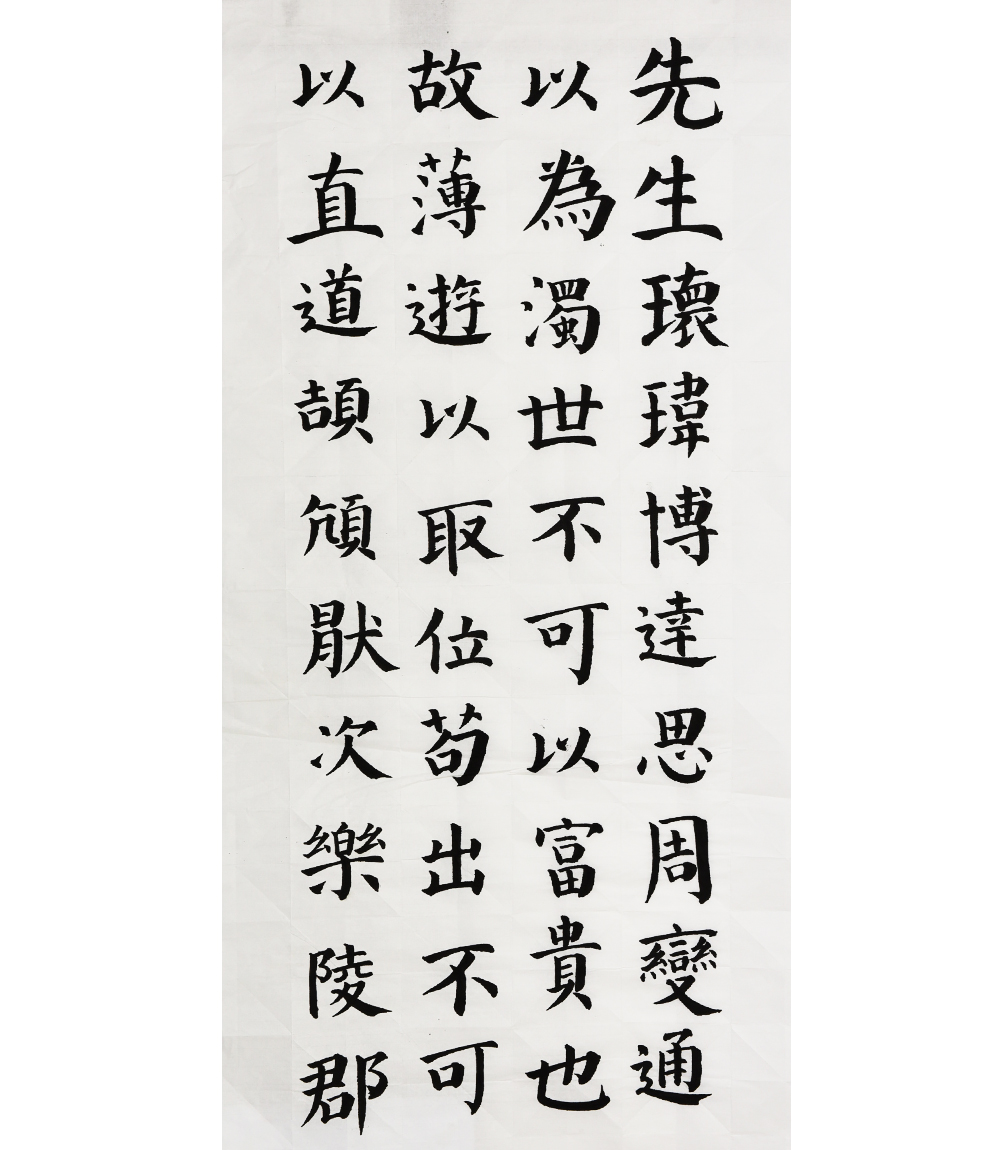 先生瓌瑋博達思周變通
以為濁世不可以富貴也
故薄遊以取位苟出不可
以直道頡頏猒次樂陵郡